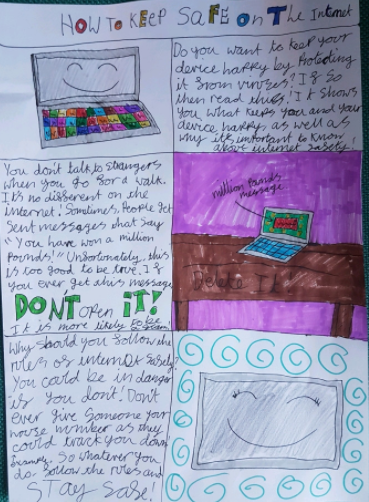 HOW TO KEEP SAFE On The Internet
Do you want to keep your
device happy by Protecting
it from viruses? If So
then read this! It shows
you what keeps you and your
device happy as well as
why it's important to know
about internet safety!
You don't talk to strangers
when you go for a walk.
It's no different on the
internet! Sometimes, People get
Sent messages what say
"You have won a million
Pounds!" Unfortunately, this
is too good to be true. If
you ever get this message
DON'T open iT!
It is more likely to be
million Pounds
message
Delete It!
Why should you follow the
rules of internet safety?
You could be in danger
if you don't! Don't
ever give someone your
house number as they
could track you down
So whatever you
do follow the rules and
STAY SAFE!